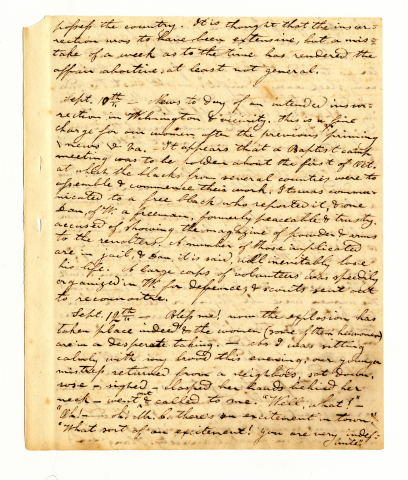 possess the country. It is thought that the insur-
rection was to have been extensive, but a mis-
take of a week as to the time has rendered the
affair abortive, at least not general.
Sept. — News to day of an intended insur-
rection in Wilmington & vicinity, this is a fine
charge for our women after the previous priming
news & Va. It appears that a Baptist camp
meeting was to be holden about the first of Oct.
at which the blacks from several counties were to
assemble & commence their work. It was commu-
nicated to a free black who reported it, & one
Dan, of W. a freeman, formerly peaceable & trusty,
accused of showing the magazine of powder & arms
to the revolters. A number of those implicated
are in jail, & Dan, it is said, will inevitably lose
his life. A large corps of volunteers was speedily
organized in W. for defence, & scouts sent out
to reconnoitre.
Sept. — Bless me! now the explosion has
taken place indeed & the women (some of them
are in a desperate taking. — As I was sitting
calmly with my host this evening, our younger
mistress returned from a neighbor's, sat down,
rose — sighed — clasped her hands behind her
neck — went out & called to me. "Well, what?" —
"Oh! — oh! Mr. b. there's an excitement in town."
"What sort of an excitement? You are very indef-
inite."